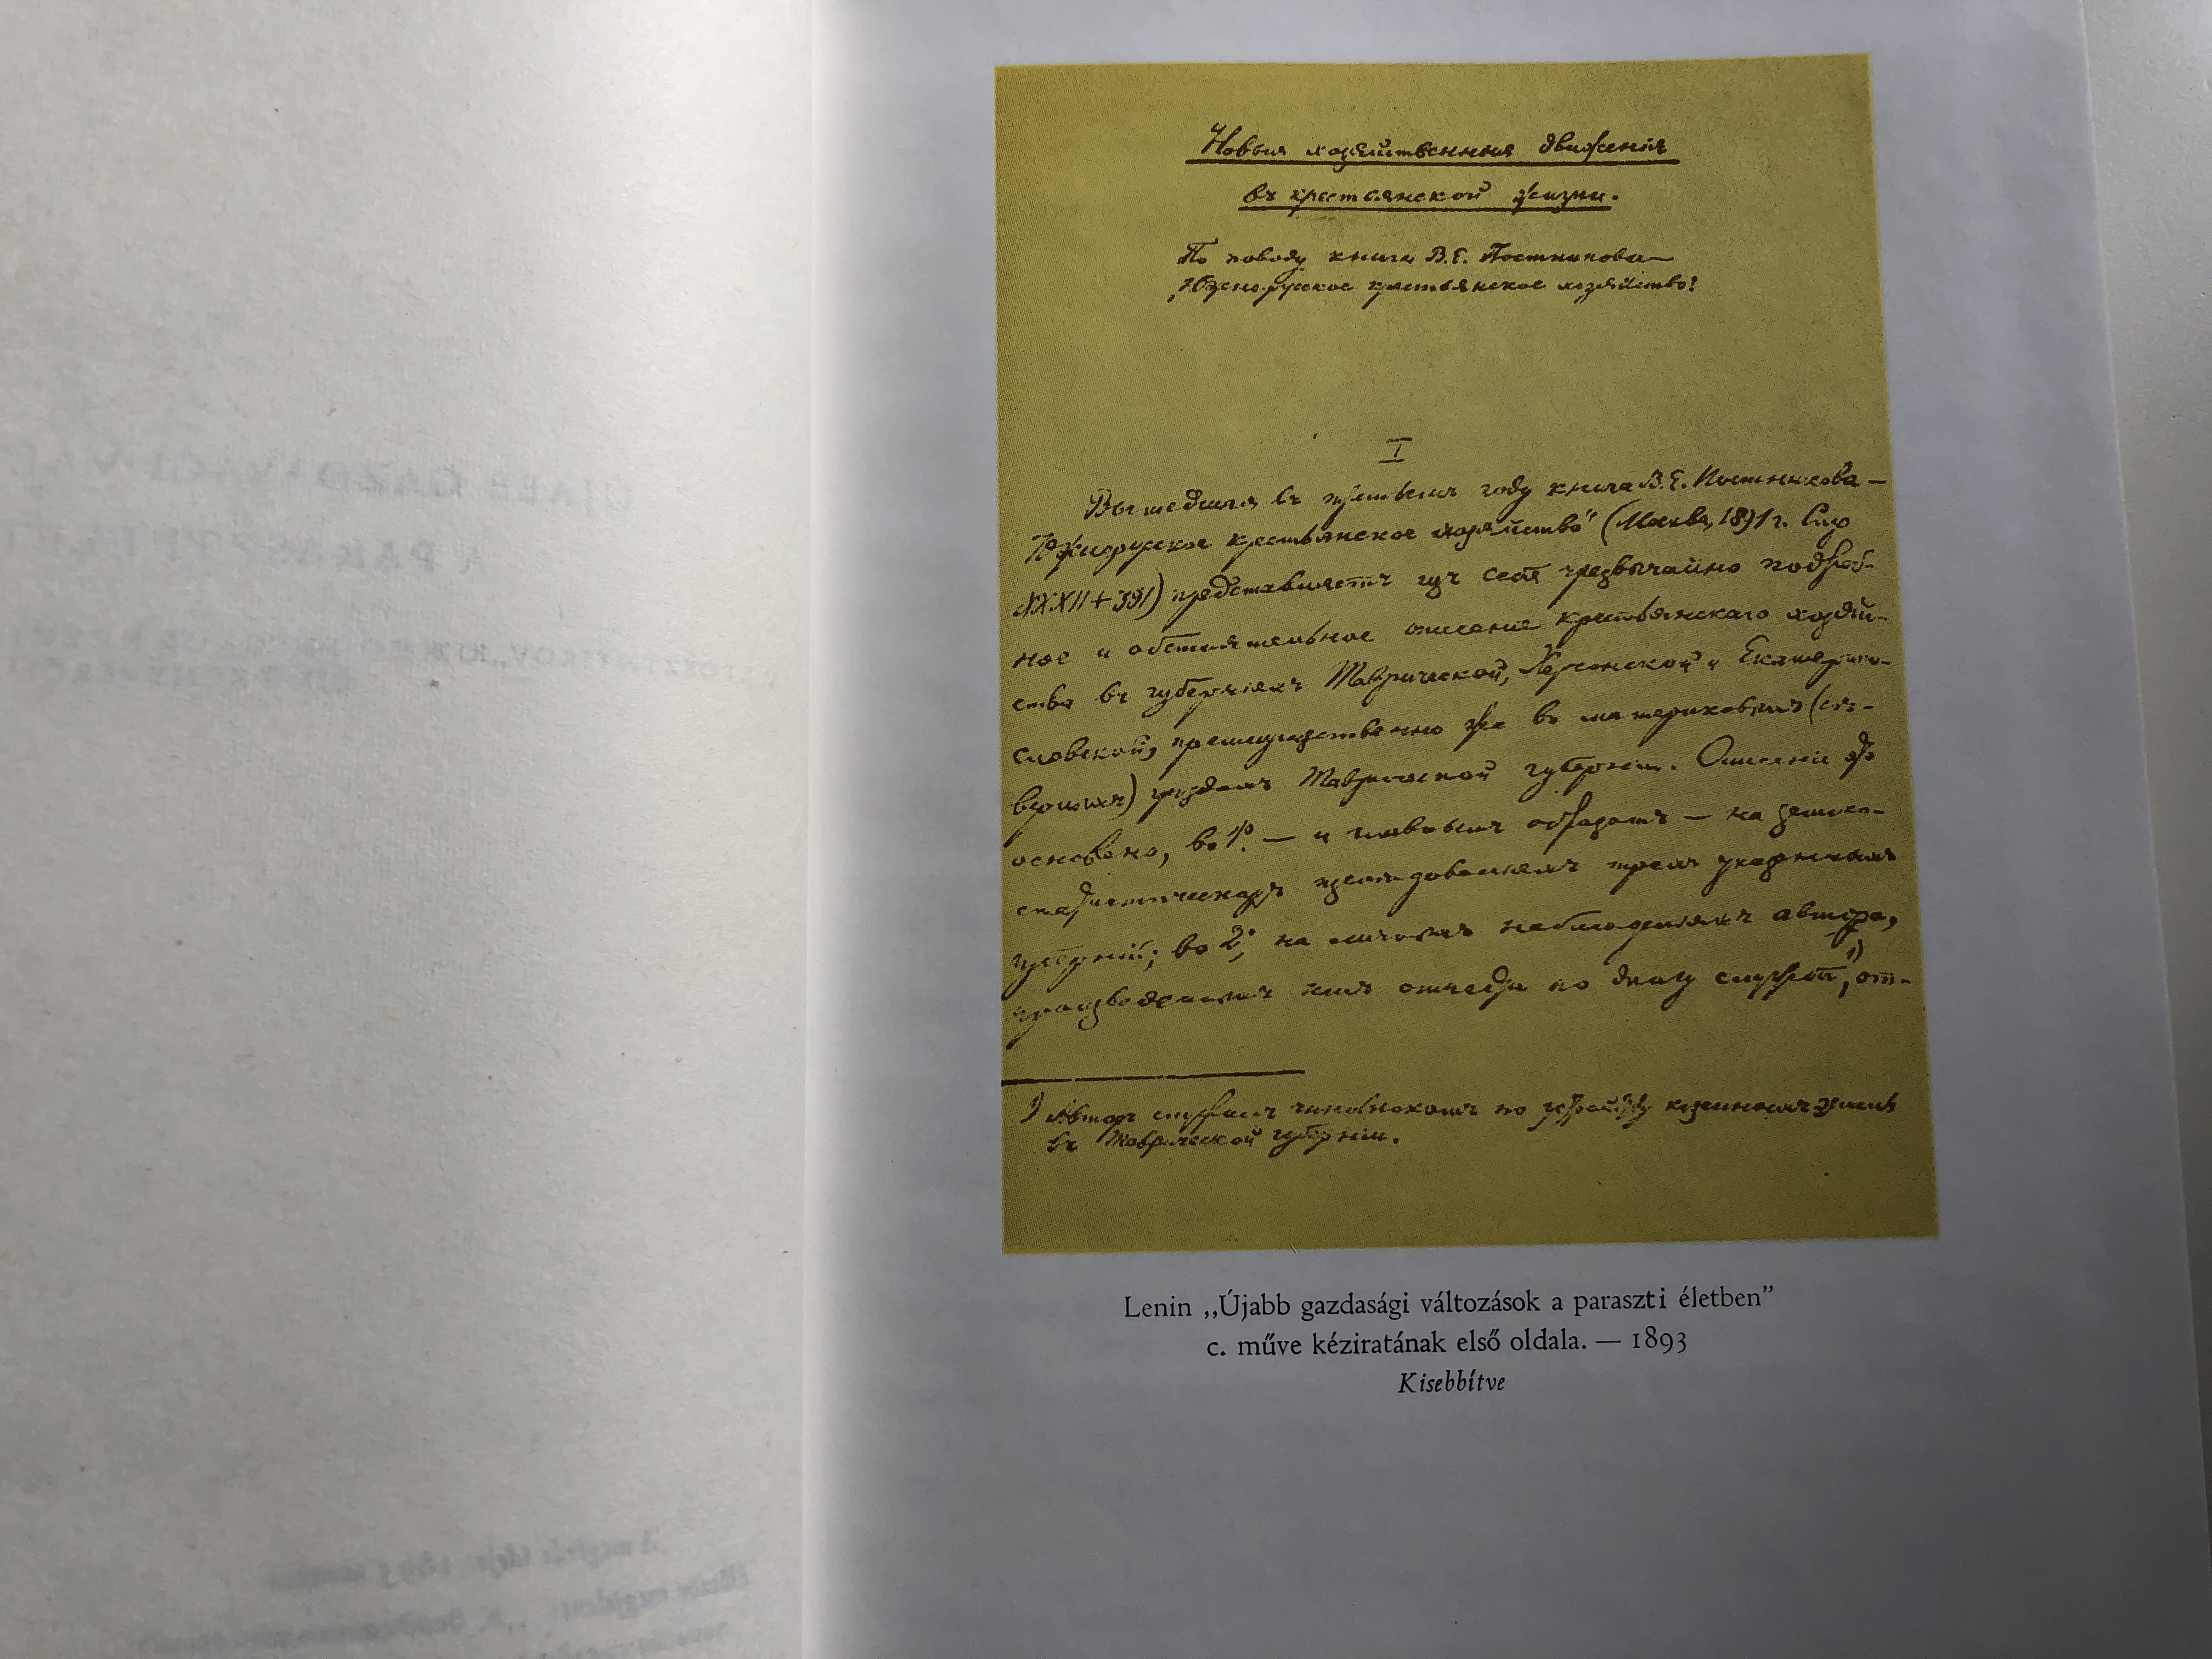 Новыя хозяйственныя движенія
въ крестьянской жизни.
По поводу книги В.Е. Постникова —
„Южно-русское крестьянское хозяйство".
I
Вышедшая въ третьемъ году книга В.Е. Постникова —
„Южнорусское крестьянское хозяйство" (Москва, 1891 г. Стр
XXXII + 391) представляетъ изъ себя чрезвычайно подроб-
ное и обстоятельное описаніе крестьянскаго хозяй-
ства въ губерніяхъ Таврической, Херсонской и Екатерино-
славской, преимущественно же въ материковыхъ (сѣ-
верныхъ) уѣздахъ Таврической губерніи. Описаніе это
основано, во 1х. — и главнымъ образомъ — на земско-
статистическихъ изслѣдованіяхъ трехъ указанныхъ
губерній; во 2хъ, на личныхъ наблюденіяхъ автора,
произведенныхъ имъ отчасти по долгу службы 1), от-
1) Авторъ служилъ чиновникомъ по устройству казенныхъ земель
въ Таврической губерніи.
Lenin „Újabb gazdasági változások a paraszti életben”
c. műve kéziratának első oldala. — 1893
Kisebbítve